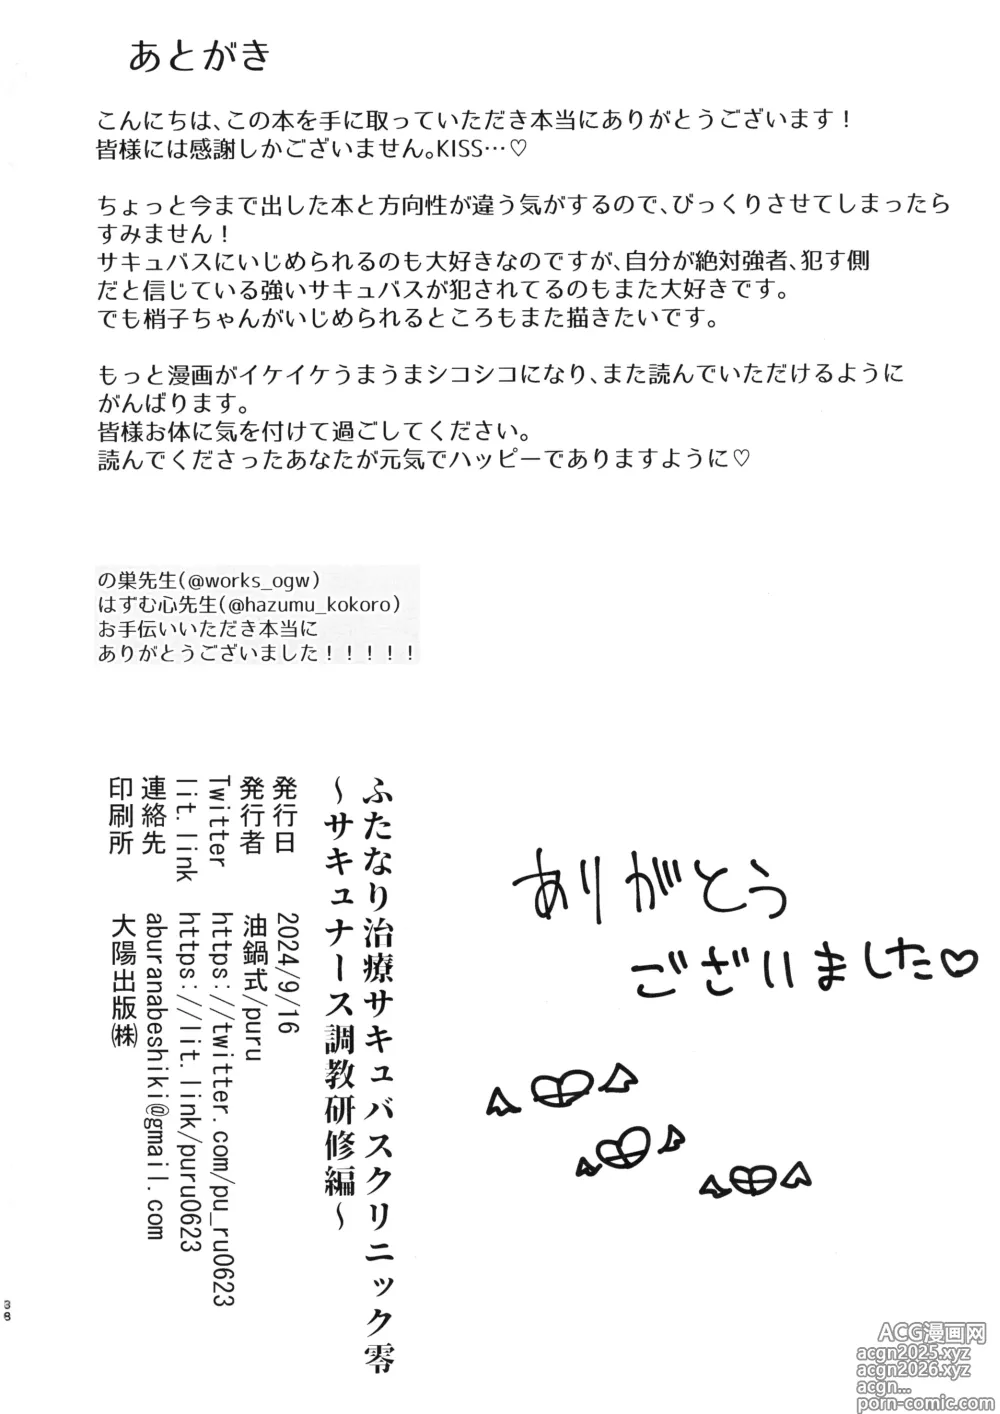 あとがき
こんにちは、この本を手に取っていただき本当にありがとうございます！
皆様には感謝しかございません。KISS…♡
ちょっと今まで出した本と方向性が違う気がするので、びっくりさせてしまったら
すみません！
サキュバスにいじめられるのも大好きなのですが、自分が絶対強者、犯す側
だと信じている強いサキュバスが犯されてるのもまた大好きです。
でも梢子ちゃんがいじめられるところもまた描きたいです。
もっと漫画がイケイケうまうまシコシコになり、また読んでいただけるように
がんばります。
皆様お体に気を付けて過ごしてください。
読んでくださったあなたが元気でハッピーでありますように♡
の巣先生(@works_ogw)
はずむ心先生(@hazumu_kokoro)
お手伝いいただき本当に
ありがとうございました！！！！！
ふたなり治療サキュバスクリニック零
～サキュナース調教研修編～
発行日 2024/9/16
発行者 油鍋式/puru
Twitter https://twitter.com/pu_ru0623
lit.link https://lit.link/puru0623
連絡先 aburanabeshiki@gmail.com
印刷所 大陽出版㈱
ありがとう
ございました♡
38
ACG漫画网
acgn2025.xyz
acgn2026.xyz
acgn...
porn-comic.com